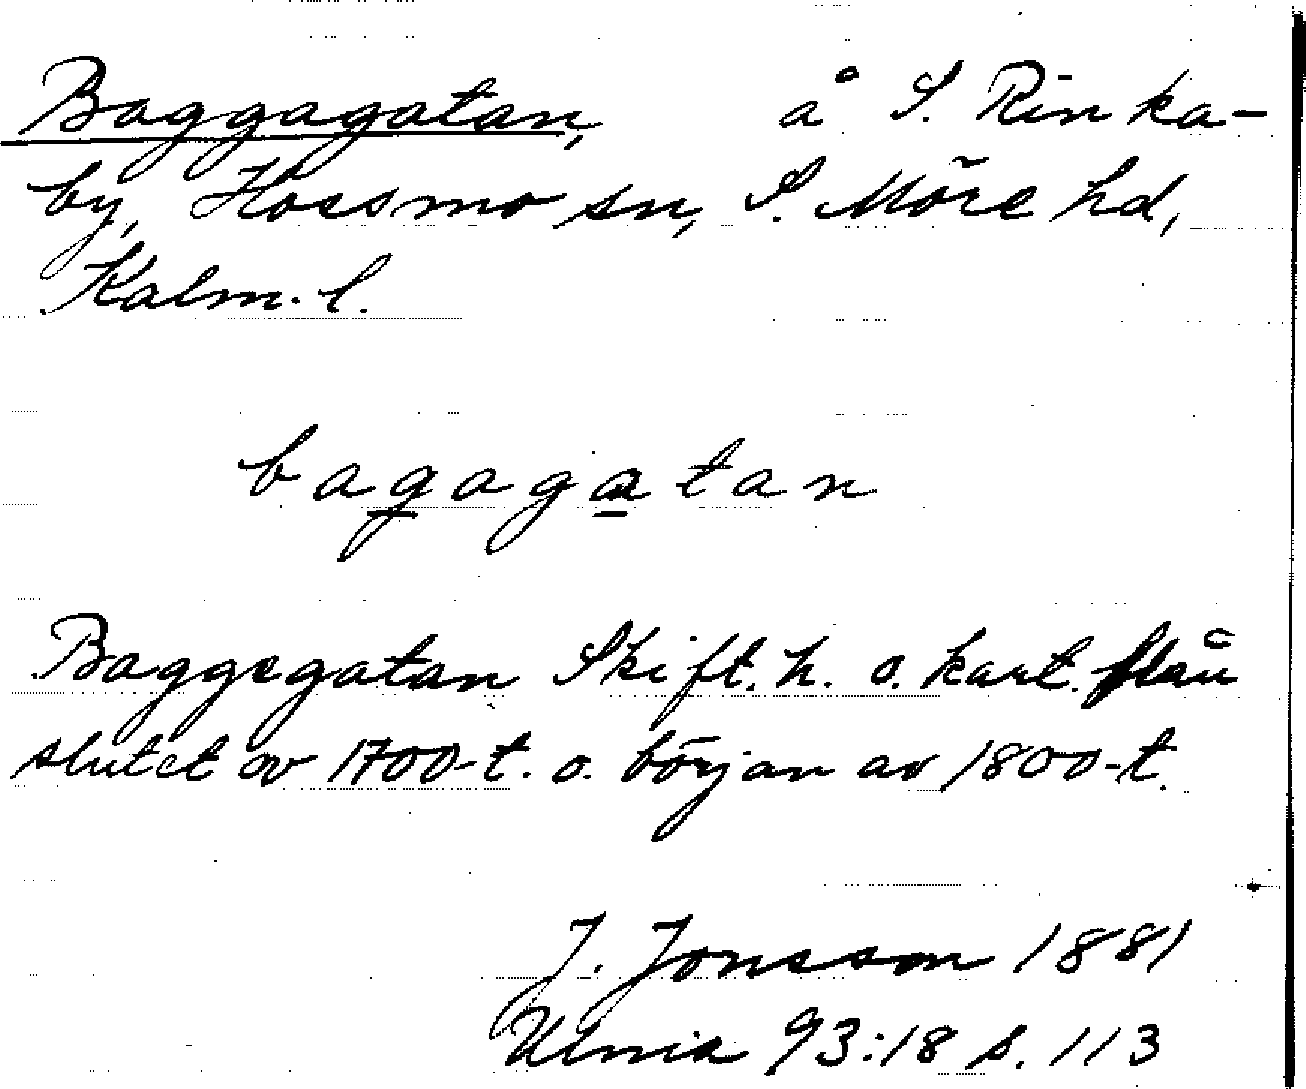 Baggagatan, å S. Rinka-
by, Hossmo sn, S. Möre hd,
Kalm. l.
bagagatan
Baggegatan Skift. h. o. kart. från
slutet av 1700-t. o. början av 1800-t.
J. Jonsson 1881
Ulmia 93:18 s. 113